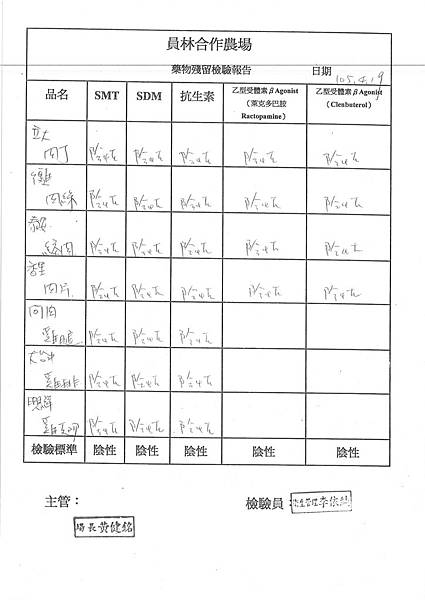 員林合作農場
藥物殘留檢驗報告 日期 105.4.19
品名 SMT SDM 抗生素 乙型受體素βAgonist（萊克多巴胺 Ractopamine） 乙型受體素βAgonist（Clenbuterol）
立大
肉丁 陰性 陰性 陰性 陰性 陰性
肉絲 陰性 陰性 陰性 陰性 陰性
絞肉 陰性 陰性 陰性 陰性 陰性
肉片 陰性 陰性 陰性 陰性 陰性
陰性 陰性 陰性
雞排 陰性 陰性 陰性
陰性 陰性 陰性
檢驗標準 陰性 陰性 陰性 陰性 陰性
主管： 檢驗員：
場長黃健銘